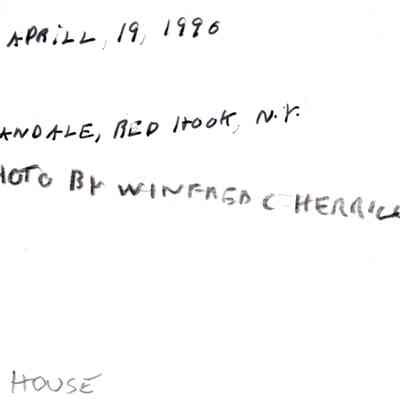 APRILL, 19, 1996
ANDALE, RED HOOK, N.Y.
HOTO BY WINFRED C HERRICK
HOUSE